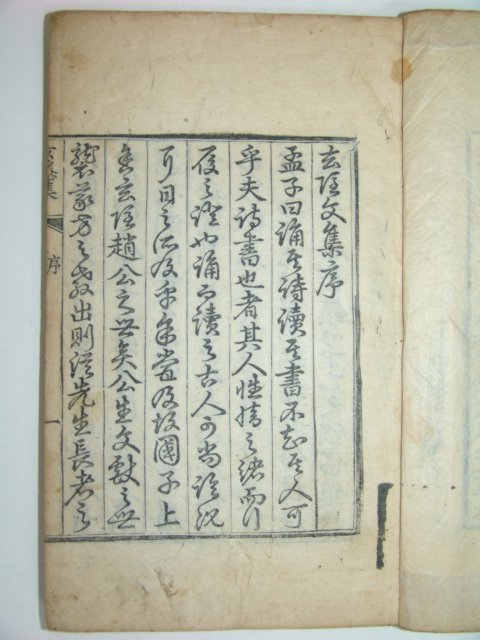 玄文集序
孟子曰誦其詩讀其書不知其人可
乎夫詩書也者其人性情之緖而行
履之證也誦而讀之古人可尚論況
耳目之所及乎余嘗及故國子上
舍玄趙公之世矣公生文獻之世
襲義方之教出則從先生長者之
集 序 一